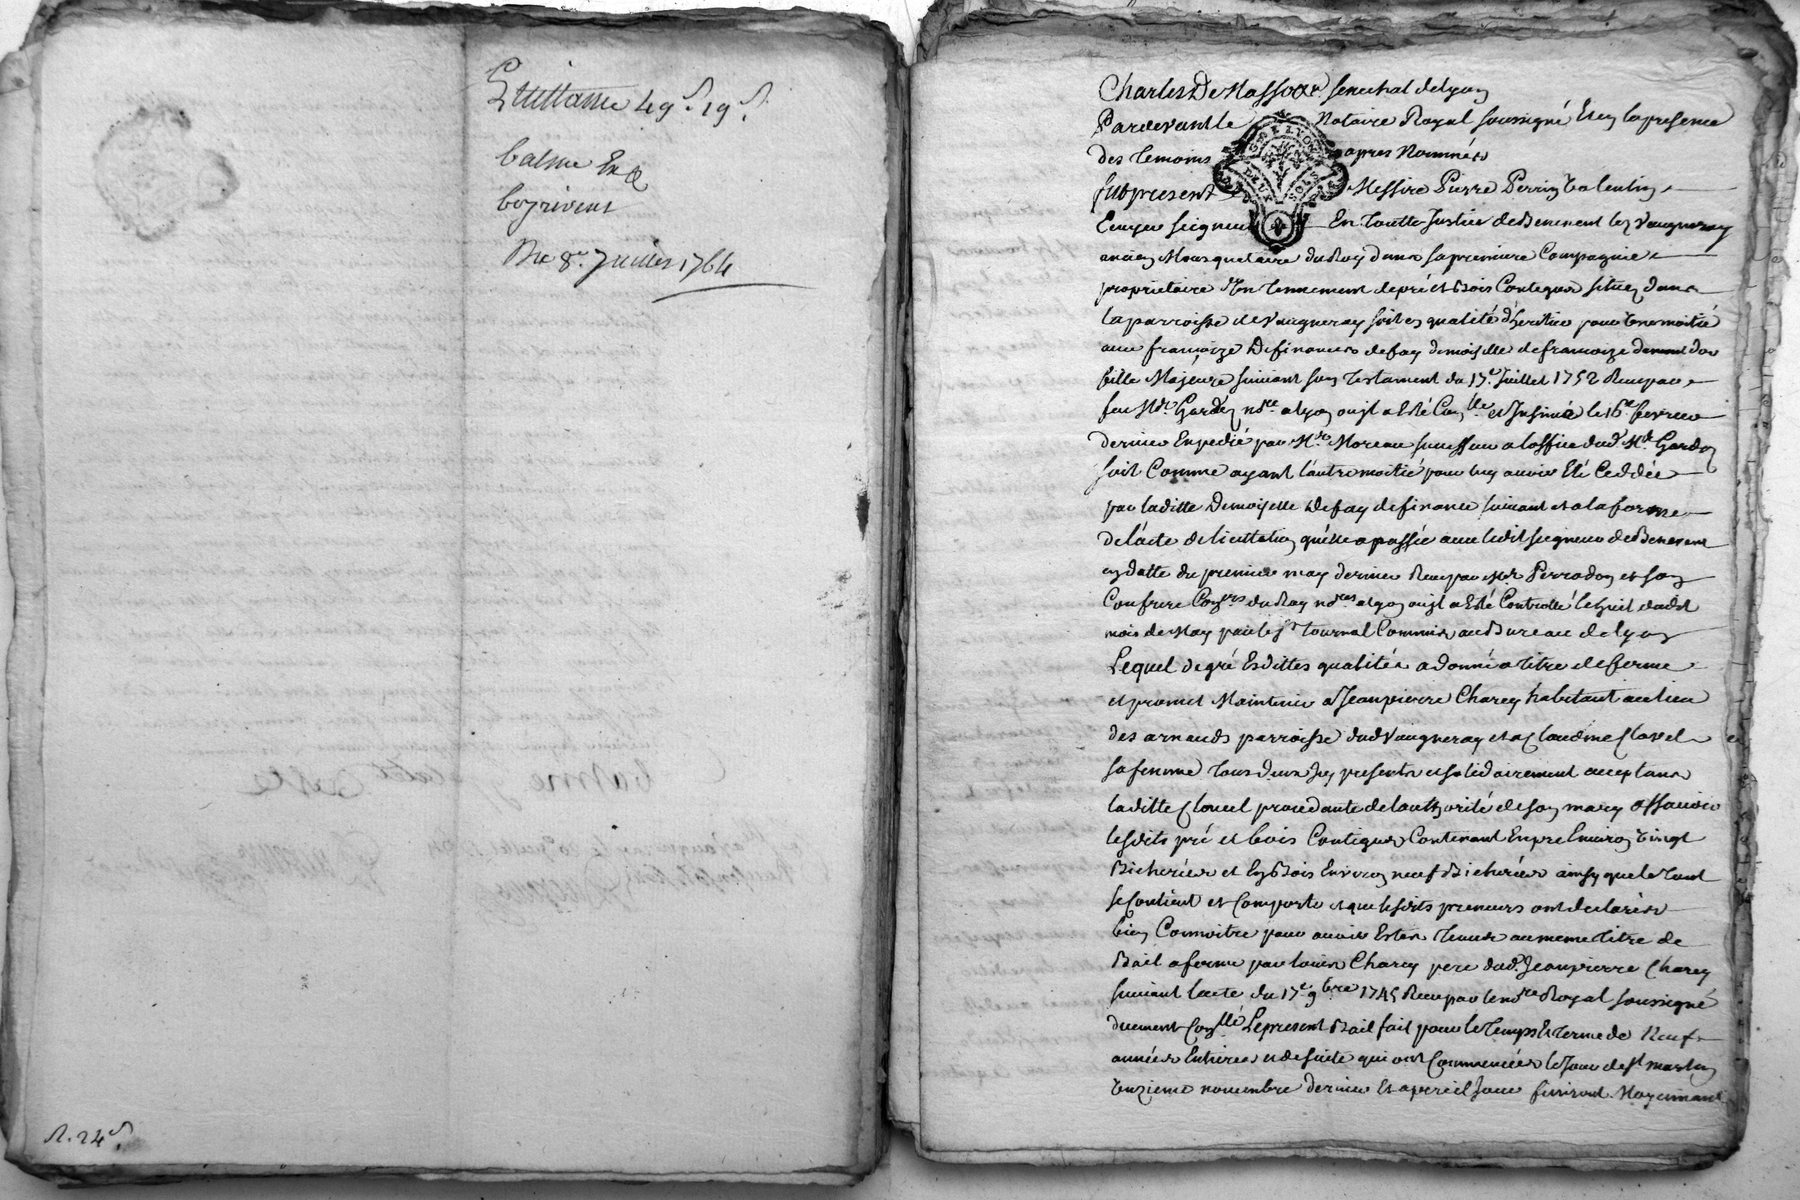 Quittance 49ˢ 19ᵈ.
balme Ex
boyrivent
Du 8ᵉ Juillet 1764
R. 24ˢ
Charles De Massoar senechal de Lyon
Pardevant le Notaire Royal soussigné Et en la presence
des Temoins apres Nommés
fut present Messire Pierre Perrin Valentin
Ecuyer Seigneur En Toutte Justice de Benevent lez Vaugneray
ancien Mousquetaire du Roy dans sa premiere Compagnie
proprietaire d'un Tennement de pré et Bois Contigus situez dans
la parroisse de Vaugneray soit en qualité d'heritier pour Une moitié
de francoize
fille Majeure suivant son Testament du 17ᵉ Juillet 1752 Reçu par
feu Mʳ. Gardon nʳᵉ a Lyon ou il a Eté Conˡˡᵉ et Insinué le 16ᵉ fevrier
dernier Expedié par Mʳᵉ Moreau successeur a loffice dudᵗ Mᵉ Gardon
soit Comme ayant l'autre moitié pour luy avoir Eté Ceddée
par laditte Demoiselle Defay definance suivant et a la forme
de l'acte de licittation qu'elle a passée avec ledit seigneur de Benevent
en datte du premier may dernier Reçu par Mʳ Perrodon et son
Confrere Conʳˢ du Roy nʳᵉˢ a Lyon ou il a Eté Controllé le huit dudit
mois de May par le sʳ Tournal Commis au Bureau de Lyon
Lequel de gré Esdittes qualités a donné a titre de ferme
et promet Maintenir a Jean pierre Charey habitant au lieu
des arnauds parroisse dud Vaugneray et a Claudine Clavel
sa femme Tous deux Icy presents et solidairement acceptans
laditte Clavel procedante de lauthorité de son mary assavoir
lesdits pré et bois Contigus Contenant En pré Environ Vingt
Bicherées et En Bois Environ neuf Bicherées ainsy que le Tout
se Contient et Comporte et que lesdits preneurs ont declarés
bien Connoitre pour avoir Estés Tenus au meme titre de
Bail a ferme par louis Charey pere dudᵗ Jean pierre Charey
suivant l'acte du 17ᵉ 9ᵇʳᵉ 1745 Reçu par le nʳᵉ Royal soussigné
duement Conˡˡᵉ Le present Bail fait pour le Temps et terme de Neuf
années Entieres et de suite qui ont Commencées le Jour de Sᵗ Martin
Onzieme novembre dernier Et a pareil Jour finiront Moyennant